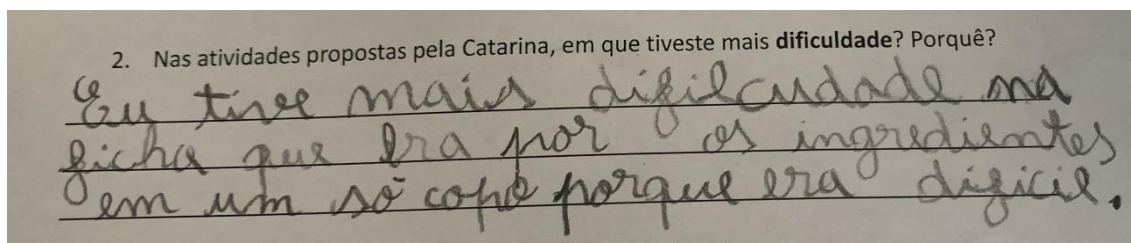 2. Nas atividades propostas pela Catarina, em que tiveste mais dificuldade? Porquê?
Eu tive mais difilcudade na
ficha que era por os ingredientes
em um só copo porque era dificil.